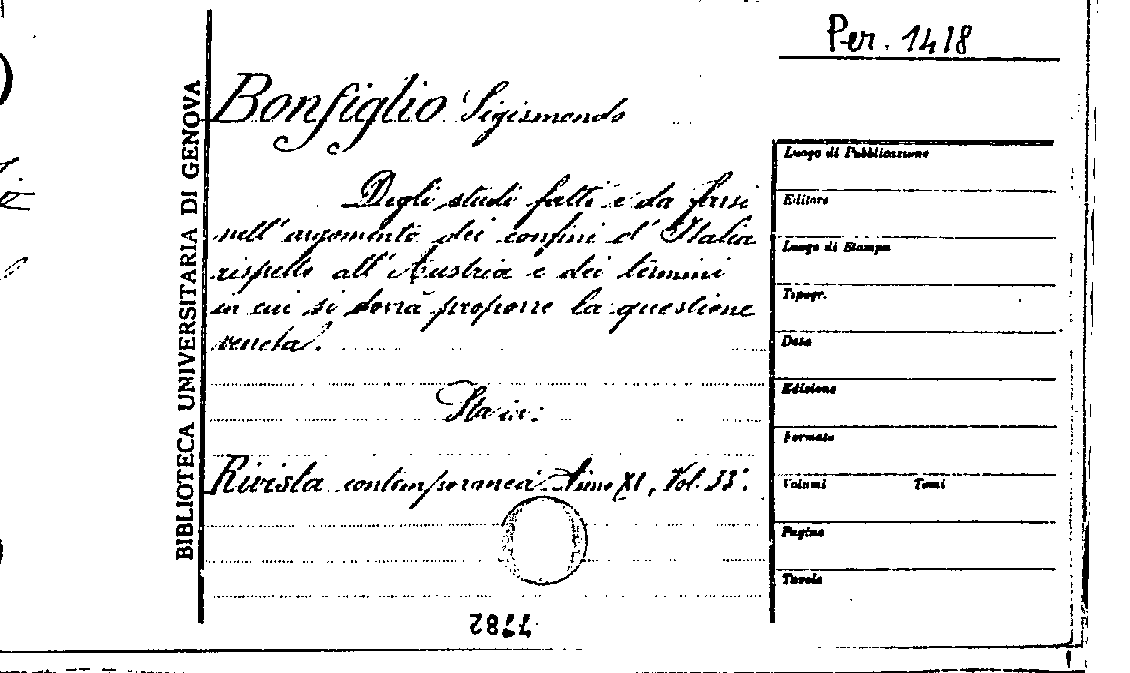 Per. 1418
BIBLIOTECA UNIVERSITARIA DI GENOVA
Bonfiglio Sigismondo
Degli studi fatti e da farsi
nell'argomento dei confini d'Italia
rispetto all'Austria e dei termini
in cui si dovrà proporre la questione
veneta.
Sta in:
Rivista contemporanea Anno XI, Vol. 33°.
7782
Luogo di Pubblicazione
Editore
Luogo di Stampa
Tipogr.
Data
Edizione
Formato
Volumi Tomi
Pagine
Tavole